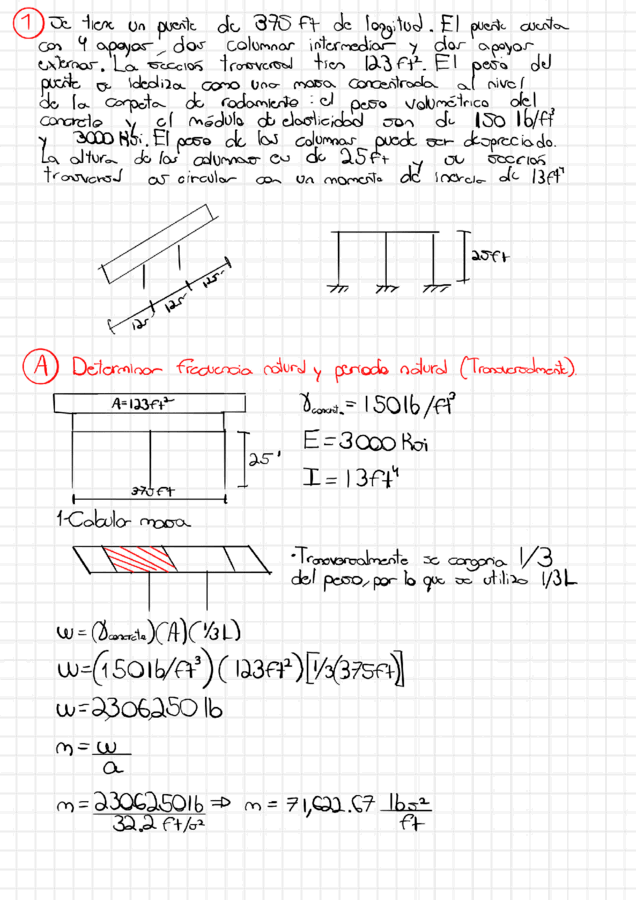 1 Se tiene un puente de 375 ft de longitud. El puente cuenta
con 4 apoyos, dos columnas intermedias y dos apoyos
externos. La seccion transversal tien 123 ft². El peso del
puente se idealiza como una masa concentrada al nivel
de la carpeta de rodamiento: el peso volumétrico del
concreto y el módulo de elasticidad son de 150 lb/ft³
y 3000 Ksi. El peso de las columnas puede ser despreciado.
La altura de las columnas es de 25ft y su seccion
transversal es circular con un momento de inercia de 13ft⁴
125' 125' 125'
25ft
A Determinar frecuencia natural y periodo natural (Transversalmente).
A=123ft²
25'
370 ft
γconcret. = 150 lb/ft³
E = 3000 Ksi
I = 13ft⁴
1-Calcular masa
·Transversalmente se cargaria 1/3
del peso, por lo que se utiliza 1/3L
w = (γconcreto)(A)(1/3 L)
w = (150 lb/ft³)(123ft²)[1/3(375ft)]
w = 2306250 lb
m = w/a
m = 2306250 lb / 32.2 ft/s² ⇒ m = 71,622.67 lb s²/ft